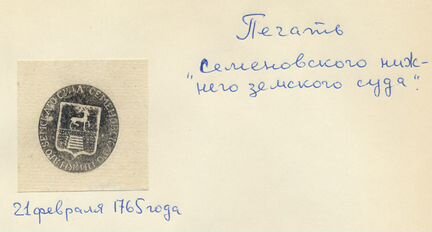 Печать
"Семеновского ниж-
него земского суда".
21 февраля 1765 года